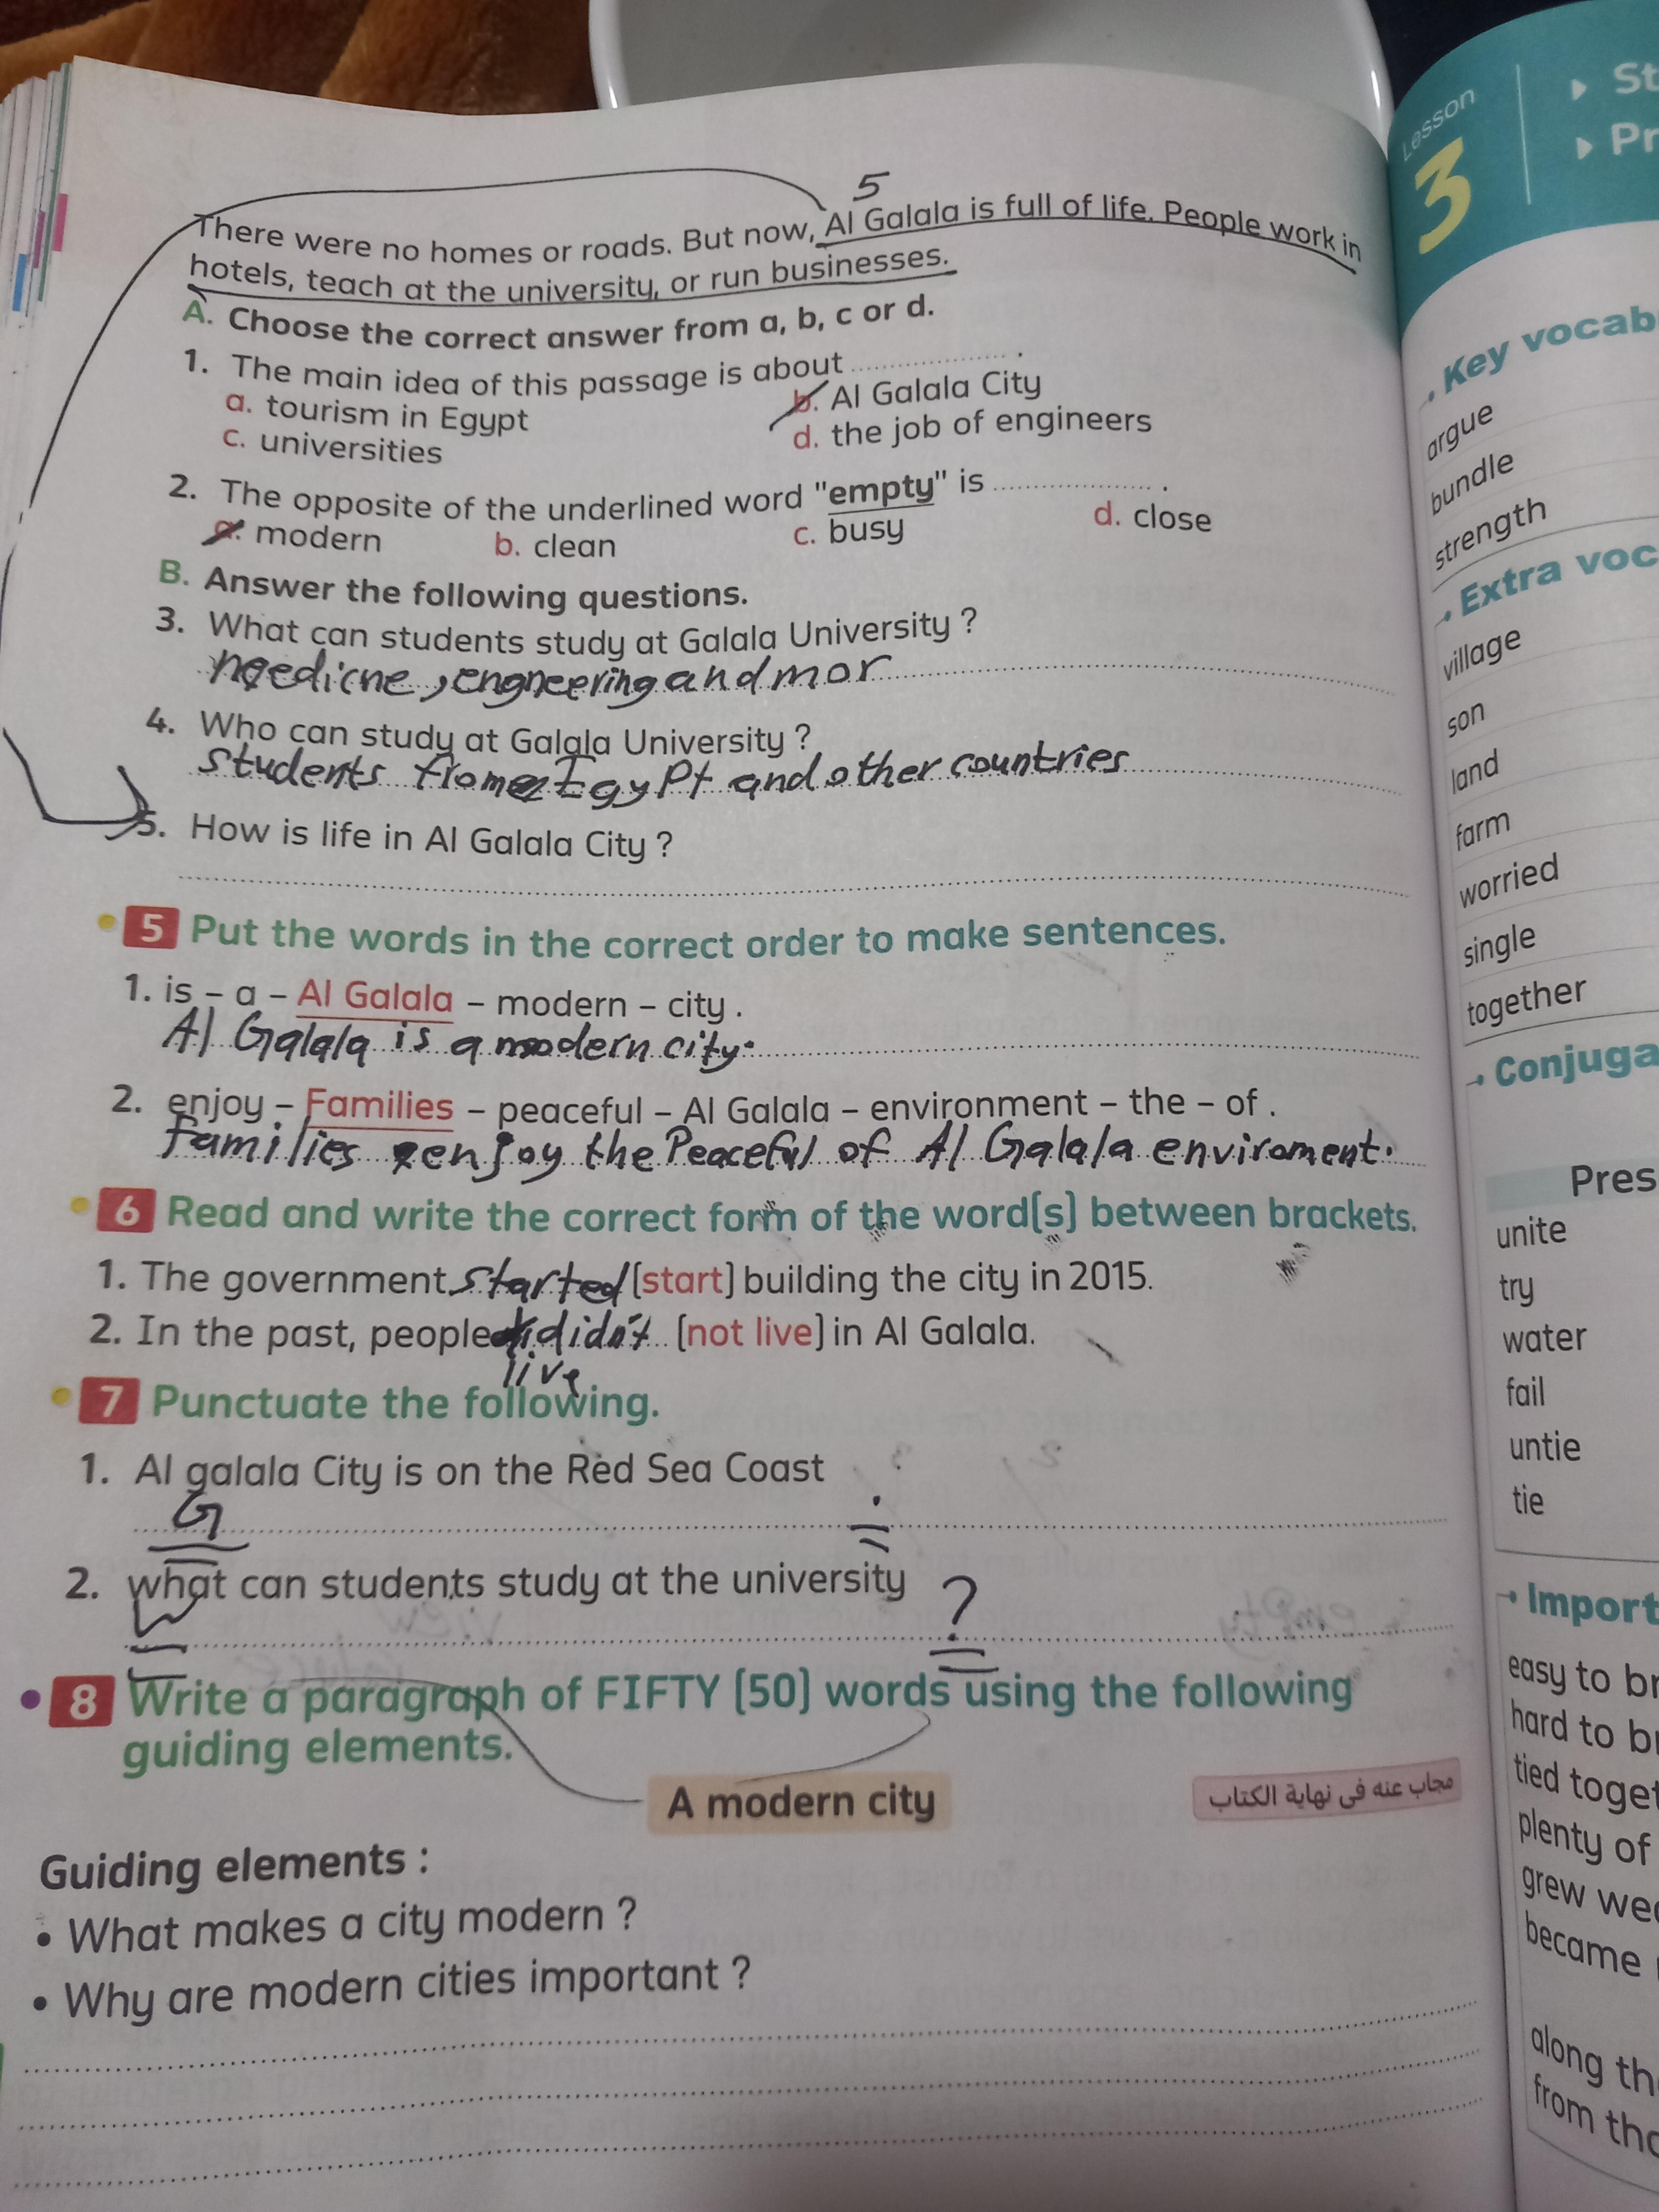 5
There were no homes or roads. But now, Al Galala is full of life. People work in
hotels, teach at the university, or run businesses.
A. Choose the correct answer from a, b, c or d.
1. The main idea of this passage is about .................... .
a. tourism in Egypt b. Al Galala City
c. universities d. the job of engineers
2. The opposite of the underlined word "empty" is .................... .
a. modern b. clean c. busy d. close
B. Answer the following questions.
3. What can students study at Galala University ?
, engneering and mor
4. Who can study at Galala University ?
students from Egypt and other countries
5. How is life in Al Galala City ?
5 Put the words in the correct order to make sentences.
1. is – a – Al Galala – modern – city .
Al Galala is a modern city.
2. enjoy – Families – peaceful – Al Galala – environment – the – of .
families enjoy the Peaceful of Al Galala enviroment.
6 Read and write the correct form of the word(s) between brackets.
1. The government started (start) building the city in 2015.
2. In the past, people didn't (not live) in Al Galala.
live
7 Punctuate the following.
1. Al galala City is on the Red Sea Coast
G .
2. what can students study at the university
W ?
8 Write a paragraph of FIFTY (50) words using the following
guiding elements.
A modern city
مجاب عنه فى نهاية الكتاب
Guiding elements :
• What makes a city modern ?
• Why are modern cities important ?
Lesson
3
St
Pr
Key vocab
argue
bundle
strength
Extra voc
village
son
land
farm
worried
single
together
Conjuga
Pres
unite
try
water
fail
untie
tie
Import
easy to br
hard to br
tied toget
plenty of
grew wea
became
along th
from tha